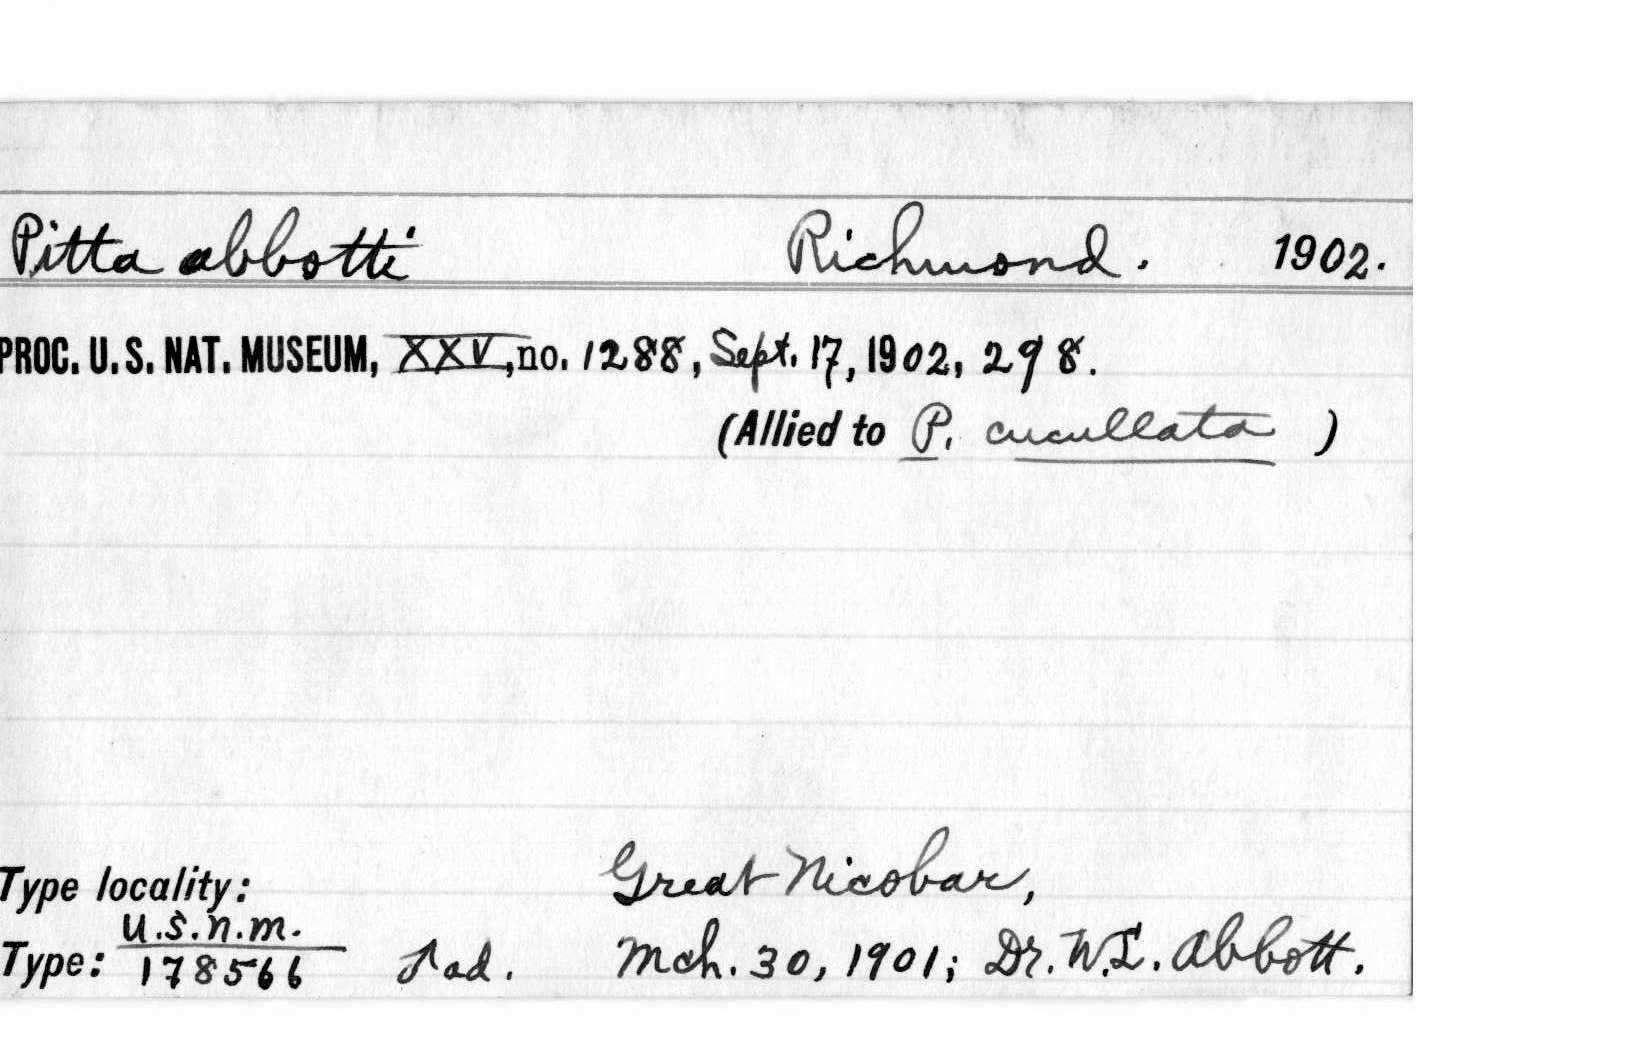 Pitta abbotti Richmond. 1902.
PROC. U. S. NAT. MUSEUM, XXV, no. 1288, Sept. 17, 1902, 298.
(Allied to P. cucullata )
Type locality: Great Nicobar,
U.S.N.M.
Type: 178566 ad. Mch. 30, 1901; Dr. W.L. Abbott.